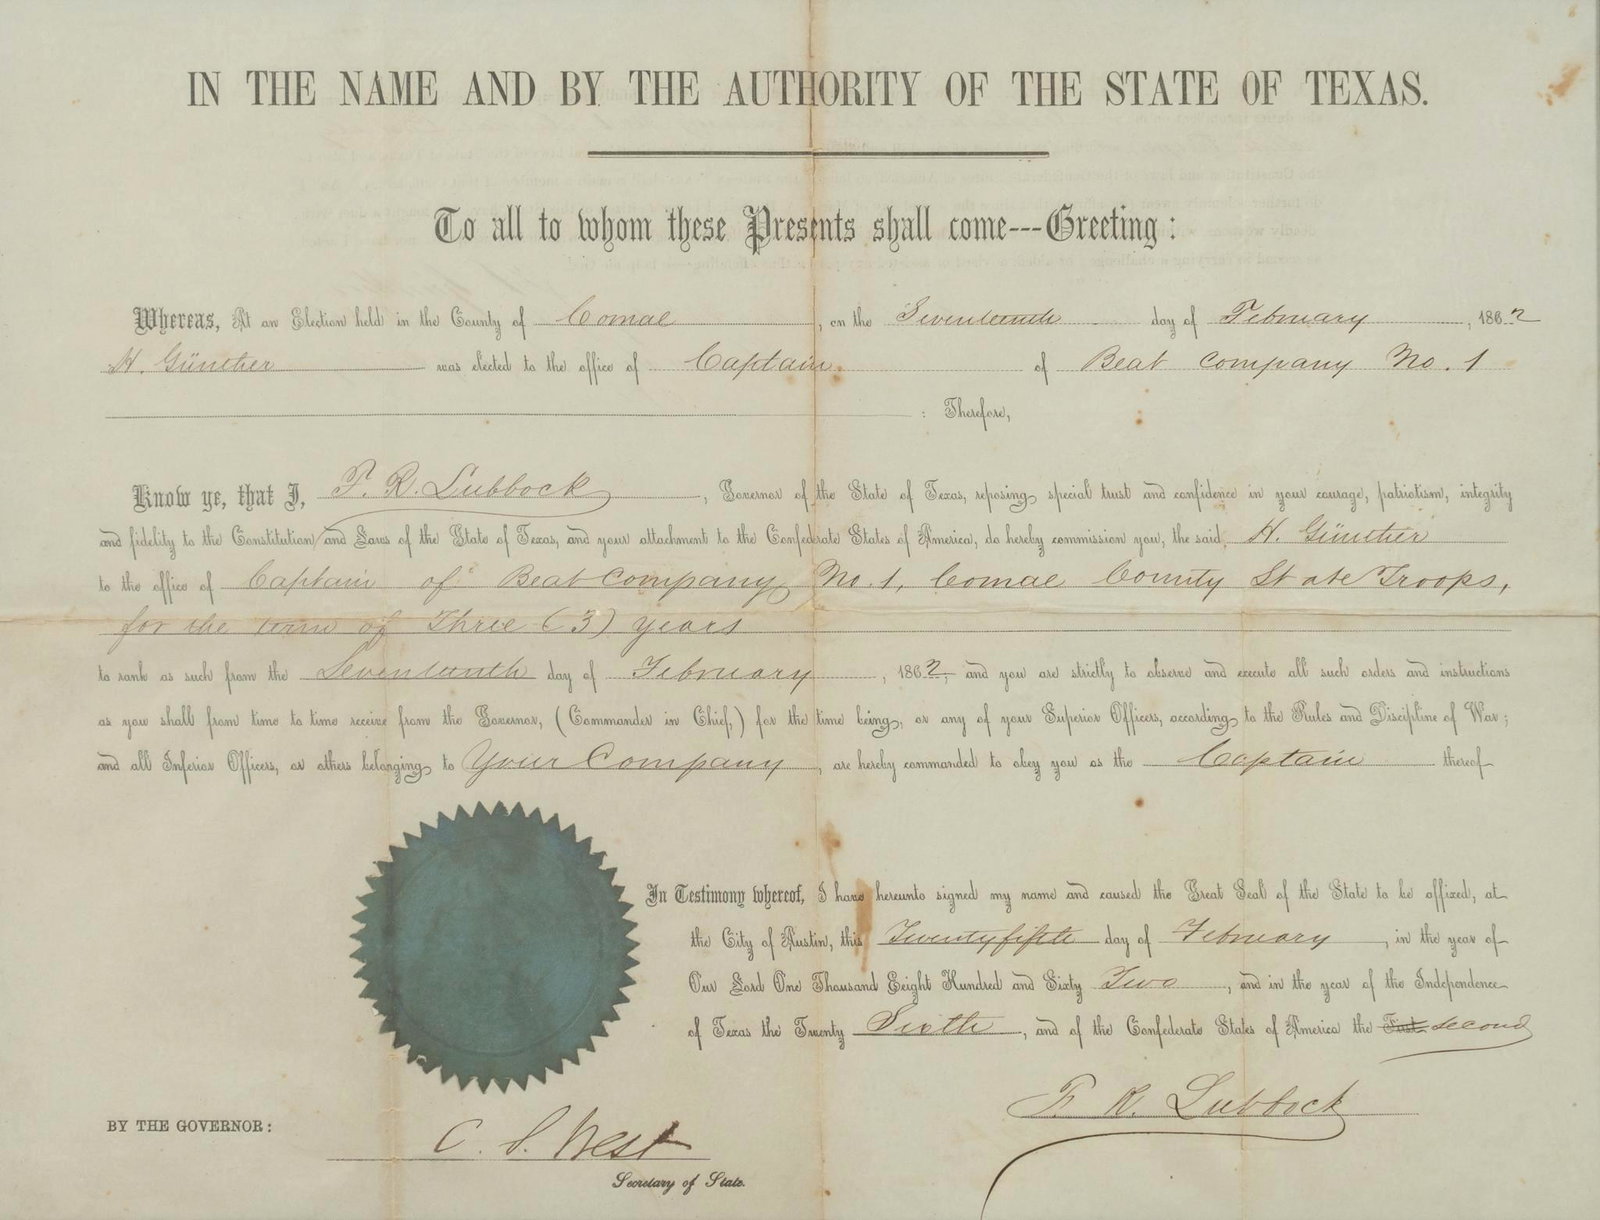 IN THE NAME AND BY THE AUTHORITY OF THE STATE OF TEXAS.
To all to whom these Presents shall come---Greeting:
Whereas, At an Election held in the County of Comal, on the Seventeenth day of February, 1862
H. Günther was elected to the office of Captain of Beat Company No. 1
: Therefore,
Know ye, that I, F. R. Lubbock, Governor of the State of Texas, reposing special trust and confidence in your courage, patriotism, integrity
and fidelity to the Constitution and Laws of the State of Texas, and your attachment to the Confederate States of America, do hereby commission you, the said, H. Günther
to the office of Captain of Beat Company No. 1, Comal County State Troops,
for the term of Three (3) years
to rank as such from the Seventeenth day of February, 1862, and you are strictly to observe and execute all such orders and instructions
as you shall from time to time receive from the Governor, (Commander in Chief,) for the time being, or any of your Superior Officers, according to the Rules and Discipline of War;
and all Inferior Officers, or others belonging to Your Company, are hereby commanded to obey you as the Captain thereof
In Testimony whereof, I have hereunto signed my name and caused the Great Seal of the State to be affixed, at
the City of Austin, this Twentyfifth day of February, in the year of
Our Lord One Thousand Eight Hundred and Sixty Two, and in the year of the Independence
of Texas the Twenty Sixth, and of the Confederate States of America the First second
F. R. Lubbock
BY THE GOVERNOR:
C. S. West
Secretary of State.